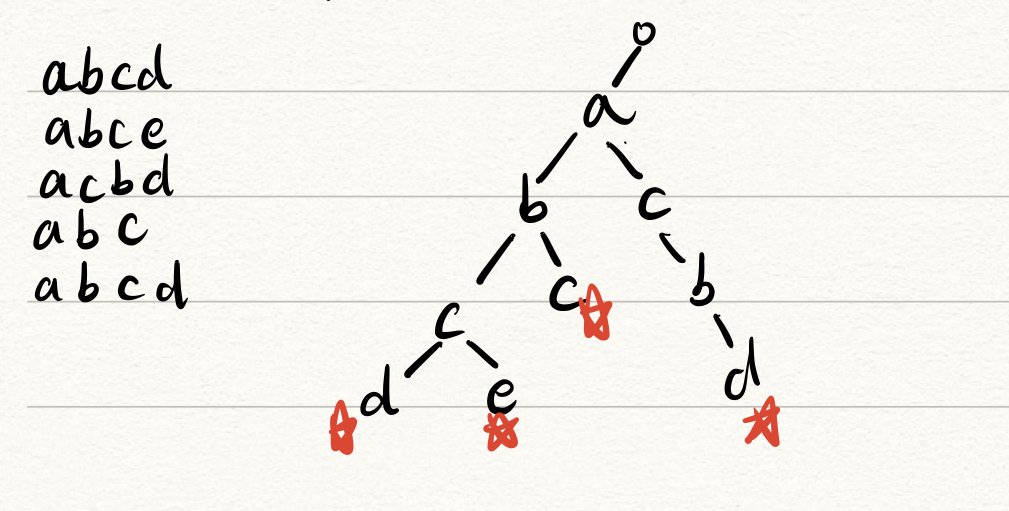 abcd
abce
acbd
abc
abcd
o
a
b c
c c b
d e d